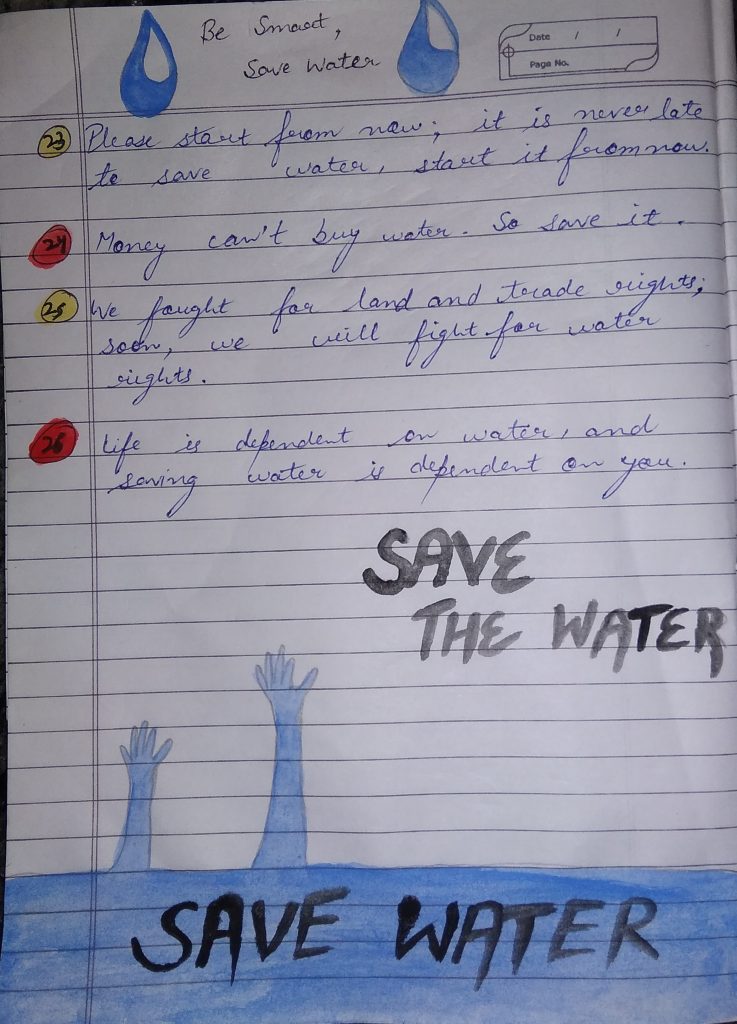 Be Smart,
Save Water
Date / /
Page No.
23 Please start from now; it is never late
to save water, start it from now.
24 Money can't buy water. So save it.
25 We fought for land and trade rights;
soon, we will fight for water
rights.
26 Life is dependent on water, and
saving water is dependent on you.
SAVE
THE WATER
SAVE WATER